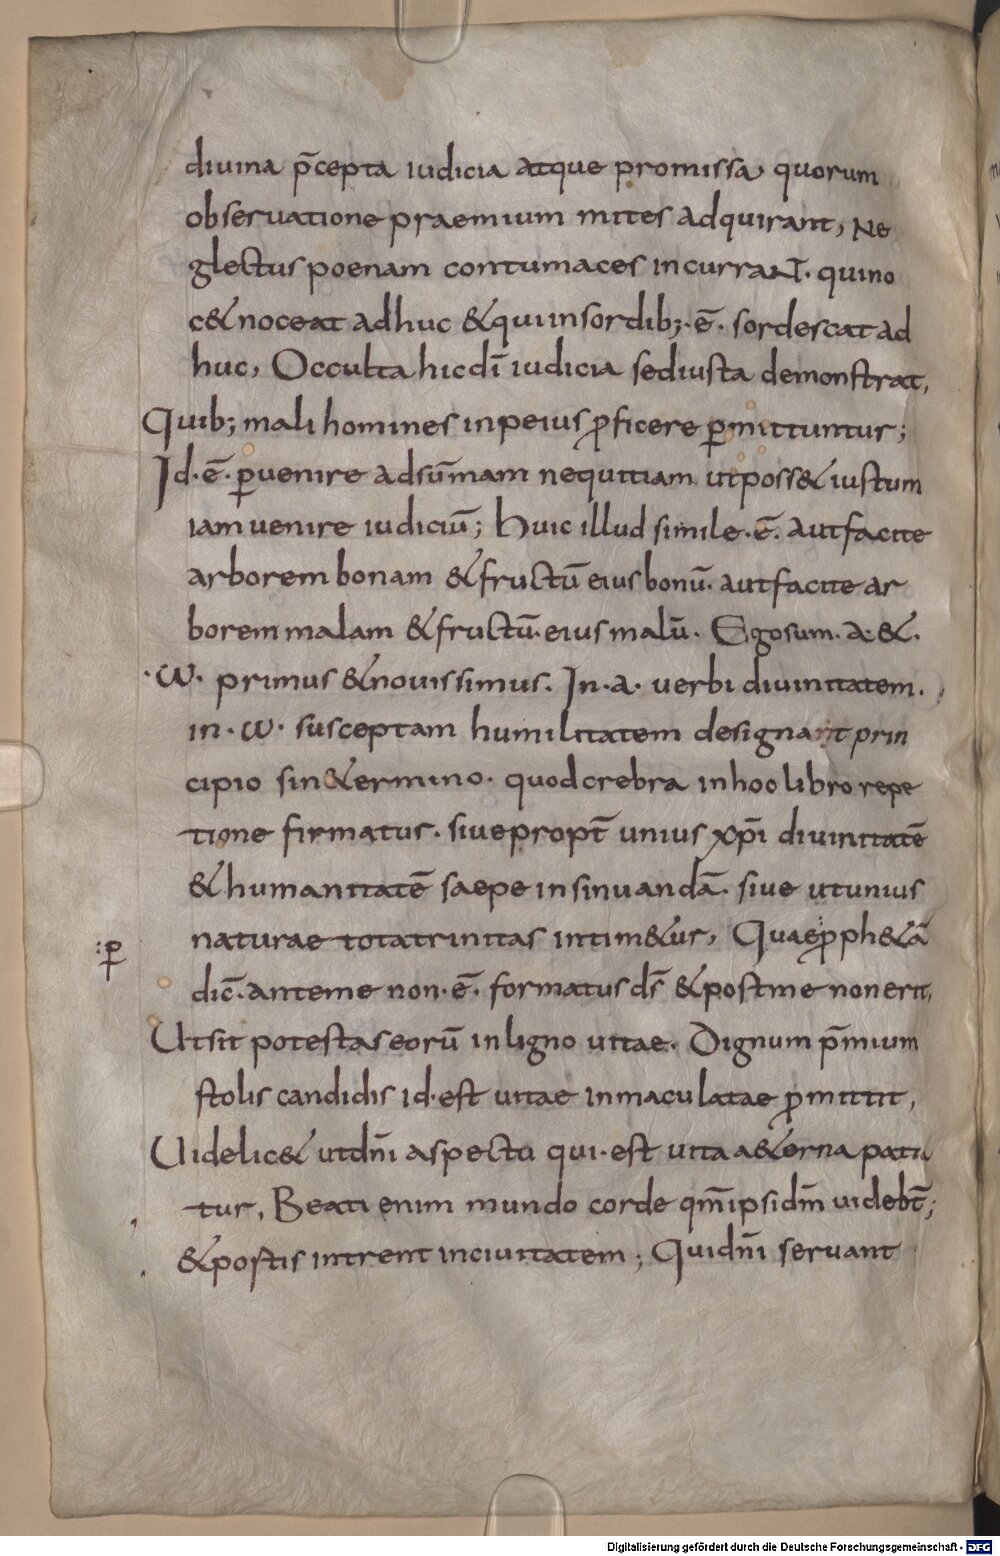 divina p̄cepta iudicia atque promissa, quorum
observatione praemium mites adquirant, Ne
glectus poenam contumaces incurraNT. qui no
c&noceat adhuc &qui insordib;·ē· sordescat ad
huc, Occulta hic dī iudicia sed iusta demonstrat,
Quib; mali homines inpeius ꝓficere ꝑmittuntur;
Id·ē·ꝑvenire adsūmam nequitiam ut poss& iustum
iam venire iudiciū; huic illud simile·ē· aut facite
arborem bonam &fructū eius bonū· aut facite ar
borem malam &fructū· eius malū· Ego sum·a·&·
·ω· primus &novissimus. In·a· verbi divinitatem.
in·ω· susceptam humilitatem designant prin
cipio sin&ermino· quod crebra in hoo libro repe
tione firmatur· sive propt̄ unius xp̄i divinitatē
&humanitatē saepe insinuandā· sive ut unius
naturae tota trinitas intim&ur, Quae ꝓph&ā
:ꝑ
dic̄·ante me non·ē· formatus ds̄ &post me non erit,
Ut sit potestas eorū in ligno vitae. Dignum p̄mium
stolis candidis id·est vitae inmaculatae ꝓmittit,
Uidelic& ut dn̄i aspectu qui·est vita a&erna patu
tur, Beati enim mundo corde qm̄ ipsi dm̄ videbt̄;
&postis intrent in civitatem; Qui dn̄i servant
Digitalisierung gefördert durch die Deutsche Forschungsgemeinschaft - DFG